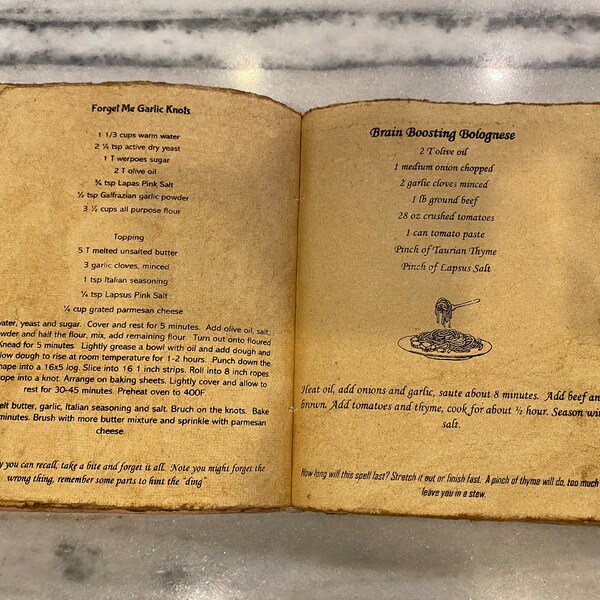 Forget Me Garlic Knots
1 1/3 cups warm water
2 ¼ tsp active dry yeast
1 T werpoes sugar
2 T olive oil
¾ tsp Lapas Pink Salt
½ tsp Galfrazian garlic powder
3 ½ cups all purpose flour
Topping
5 T melted unsalted butter
3 garlic cloves, minced
1 tsp Italian seasoning
¼ tsp Lapsus Pink Salt
¼ cup grated parmesan cheese
water, yeast and sugar. Cover and rest for 5 minutes. Add olive oil, salt,
wder and half the flour, mix, add remaining flour. Turn out onto floured
Knead for 5 minutes. Lightly grease a bowl with oil and add dough and
low dough to rise at room temperature for 1-2 hours. Punch down the
hape into a 16x5 log. Slice into 16 1 inch strips. Roll into 8 inch ropes
rope into a knot. Arrange on baking sheets. Lightly cover and allow to
rest for 30-45 minutes. Preheat oven to 400F
elt butter, garlic, Italian seasoning and salt. Bruch on the knots. Bake
minutes. Brush with more butter mixture and sprinkle with parmesan
cheese.
y you can recall, take a bite and forget it all. Note you might forget the
wrong thing, remember some parts to hint the "ding"
Brain Boosting Bolognese
2 T olive oil
1 medium onion chopped
2 garlic cloves minced
1 lb ground beef
28 oz crushed tomatoes
1 can tomato paste
Pinch of Taurian Thyme
Pinch of Lapsus Salt
Heat oil, add onions and garlic, saute about 8 minutes. Add beef an
brown. Add tomatoes and thyme, cook for about ½ hour. Season wi
salt.
How long will this spell last? Stretch it out or finish fast. A pinch of thyme will do, too much
leave you in a stew.